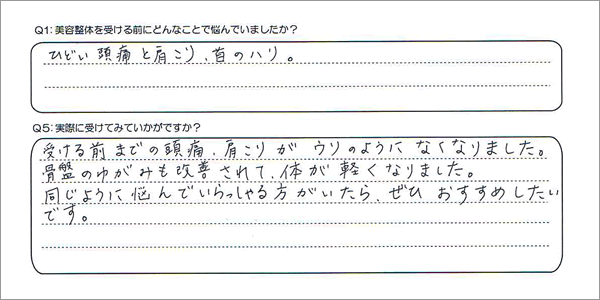 Q1:美容整体を受ける前にどんなことで悩んでいましたか?
ひどい頭痛と肩こり、首のハリ。
Q5:実際に受けてみていかがですか?
受ける前までの頭痛、肩こりがウソのようになくなりました。
骨盤のゆがみも改善されて、体が軽くなりました。
同じように悩んでいらっしゃる方がいたら、ぜひおすすめしたい
です。